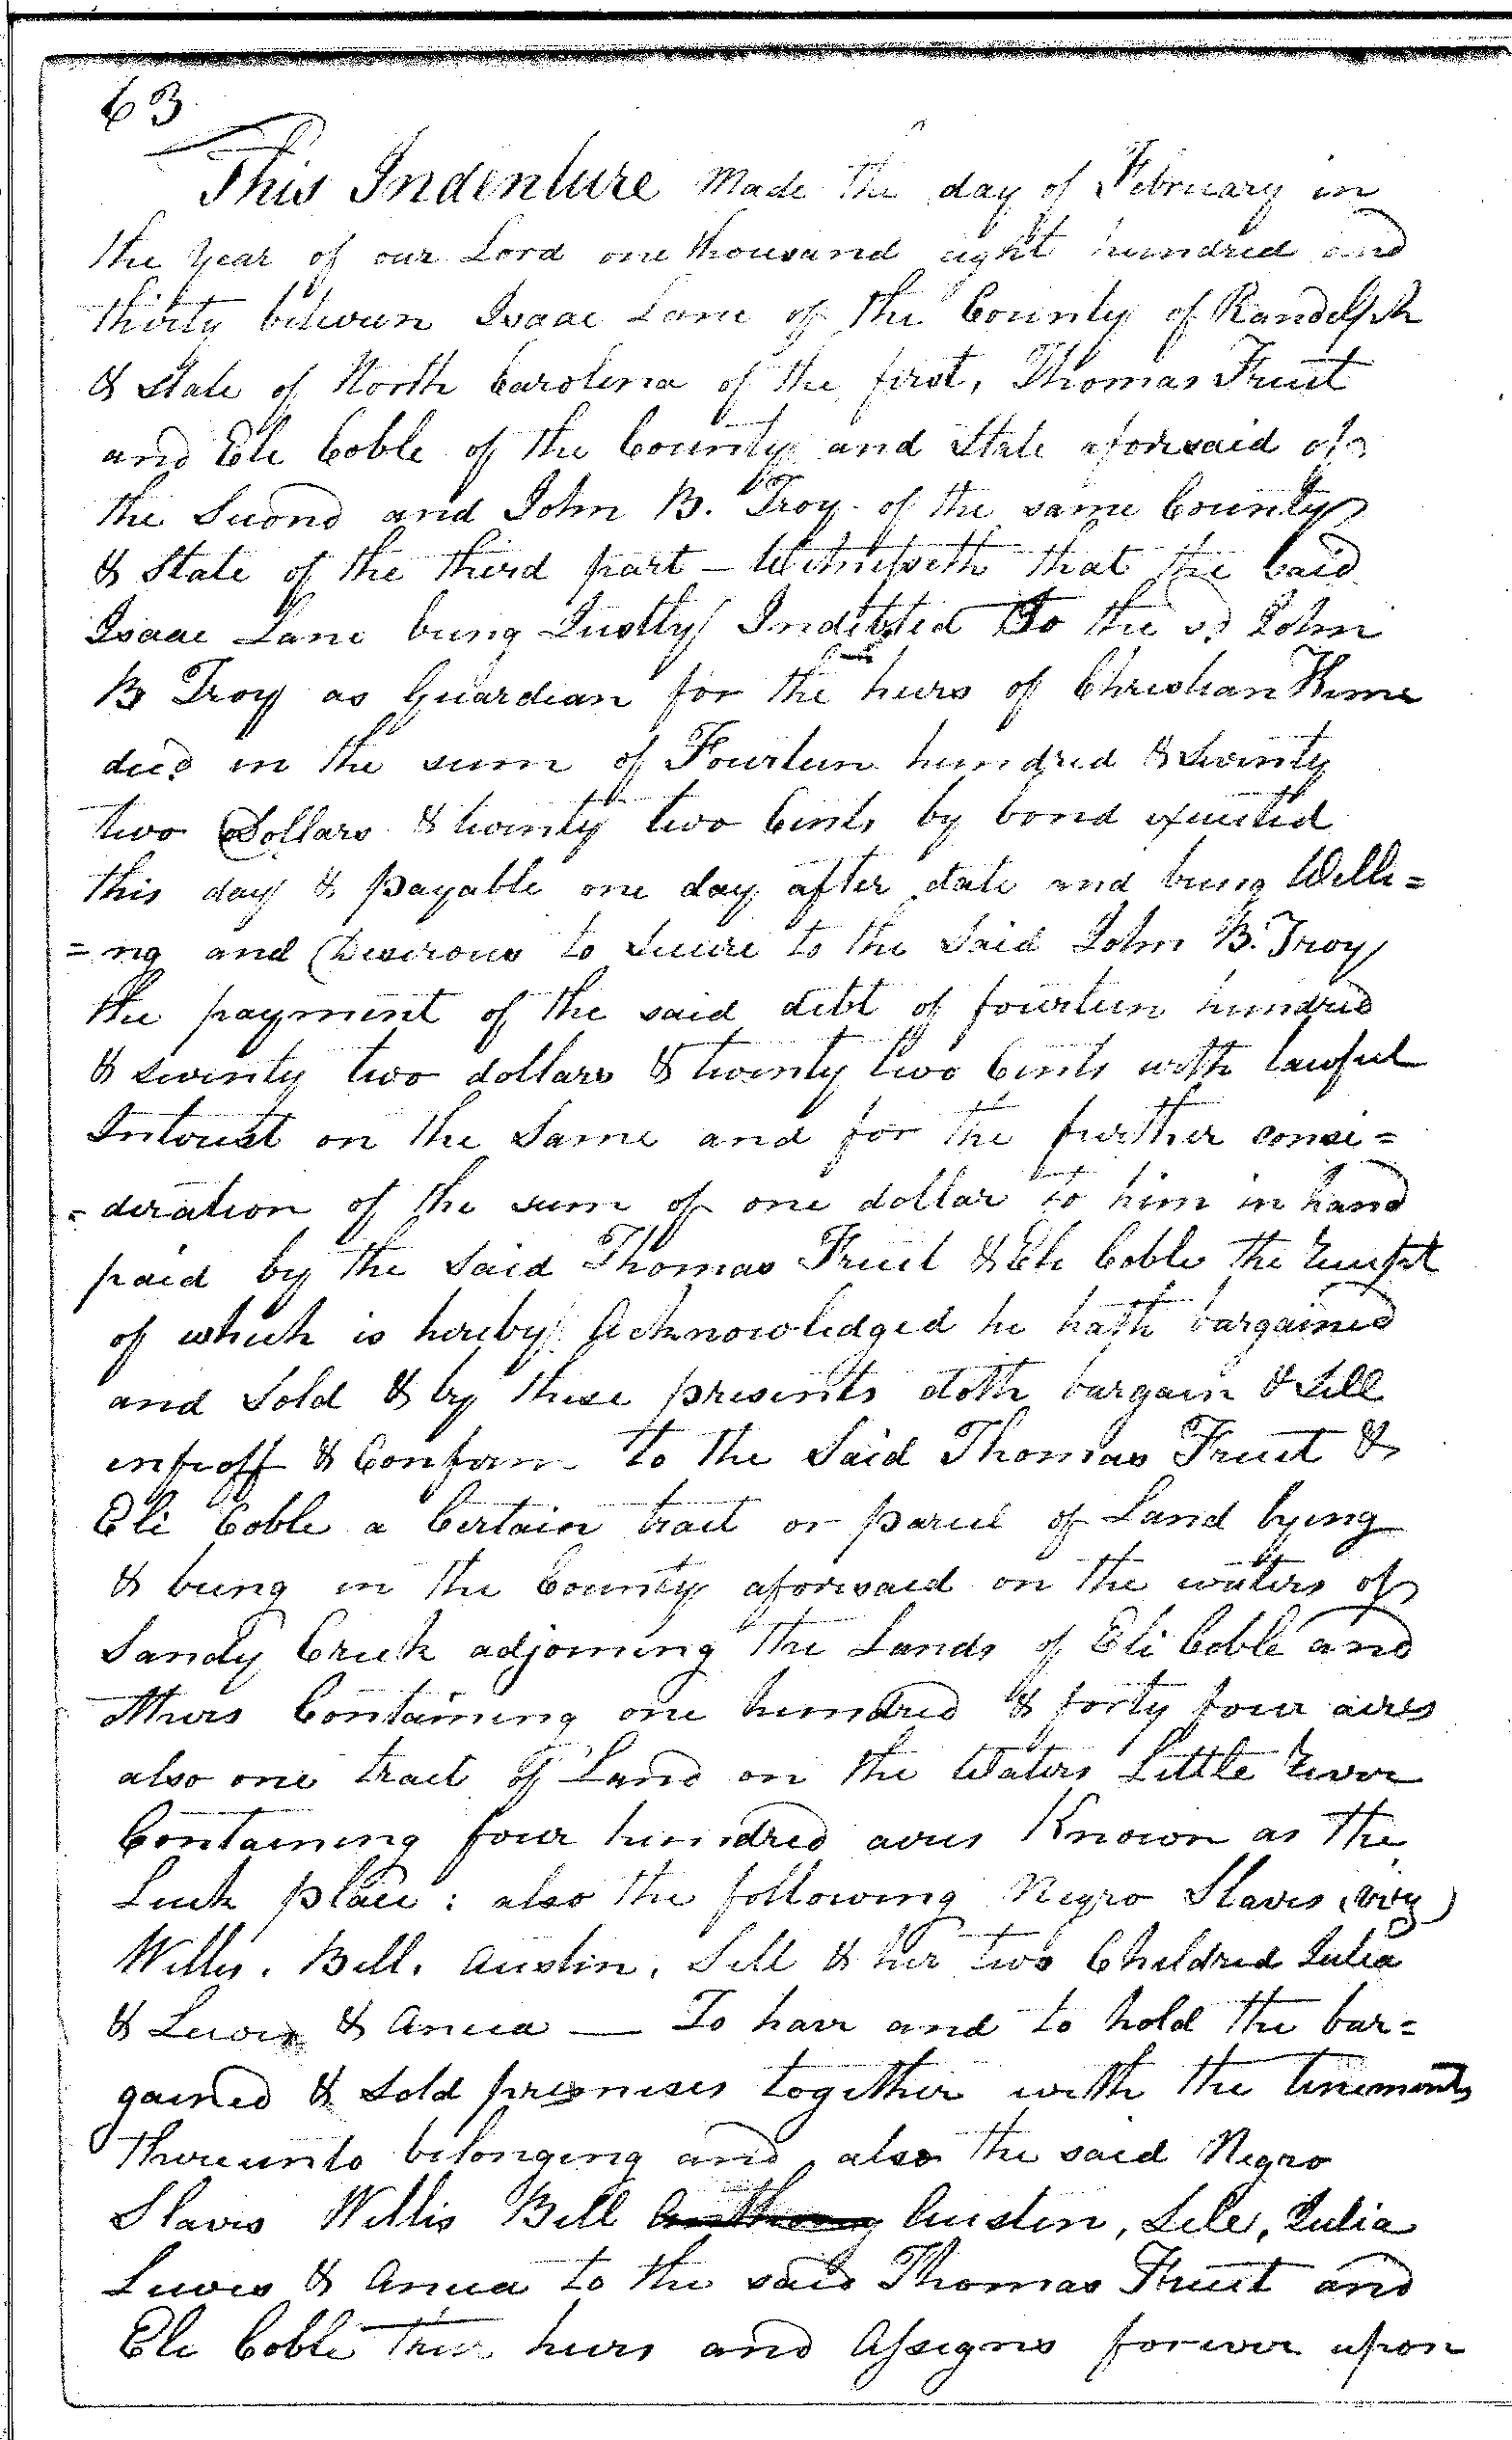 63
This Indenture Made the day of February in
the Year of our Lord one thousand eight hundred and
thirty between Isaac Lane of the County of Randolph
& State of North Carolina of the first, Thomas Fruit
and Eli Coble of the County and State aforesaid of
the Second and John B. Troy of the same County
& State of the third part – Witnesseth that the said
Isaac Lane being Justly Indebted To the sd John
B Troy as Guardian for the heirs of Christian
decd in the sum of Fourteen hundred & Seventy
two Dollars & twenty two Cents by bond executed
this day & payable one day after date and being Willi=
=ng and Desirous to Secure to the Said John B. Troy
the payment of the said debt of fourteen hundred
& seventy two dollars & twenty two Cents with lawful
Interest on the Same and for the further consi=
=deration of the sum of one dollar to him in hand
paid by the Said Thomas Fruit & Eli Coble the receipt
of which is hereby Acknowledged he hath bargained
and Sold & by these presents doth bargain & Sell
enfeoff & Confirm to the Said Thomas Fruit &
Eli Coble a Certain tract or parcel of Land lying
& being in the County aforesaid on the waters of
Sandy Creek adjoining the Lands of Eli Coble and
others Containing one hundred & forty four acres
also one tract of Land on the Waters Little River
Containing four hundred acres Known as the
Luck place : also the following Negro Slaves (viz)
Willis. Bill. Austin. Sell & her two Childred Julia
& Lewis & Anica — To have and to hold the bar=
gained & sold premises together with the tenements
thereunto belonging and also the said Negro
Slaves Willis Bill Anthony Austin, Sele, Julia
Lewis & Anica to the said Thomas Fruit and
Eli Coble their heirs and Assigns forever upon